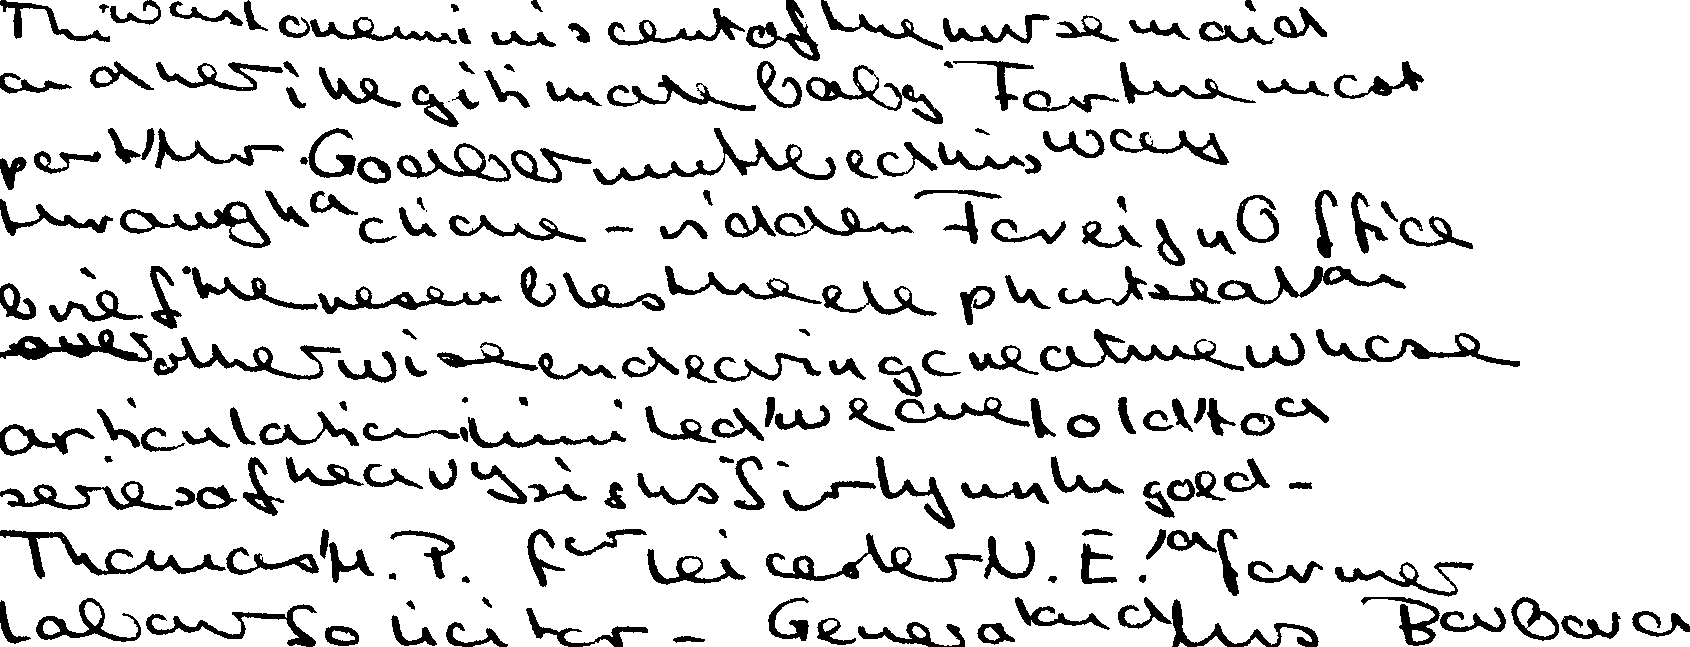 This was reminiscent of the nurse maid
and her illegitimate baby. For the most
part, Mr. Godber muttered his way
through a cliche-ridden Foreign Office
brief. He resembles the elephant seal, an
otherwise endearing creature whose
articulation is limited, we are told, to a
series of heavy sighs. Sir Lynn Ungoed-
Thomas, M.P. for Leicester N.E., a former
Labour Solicitor-General and Mrs Barbara